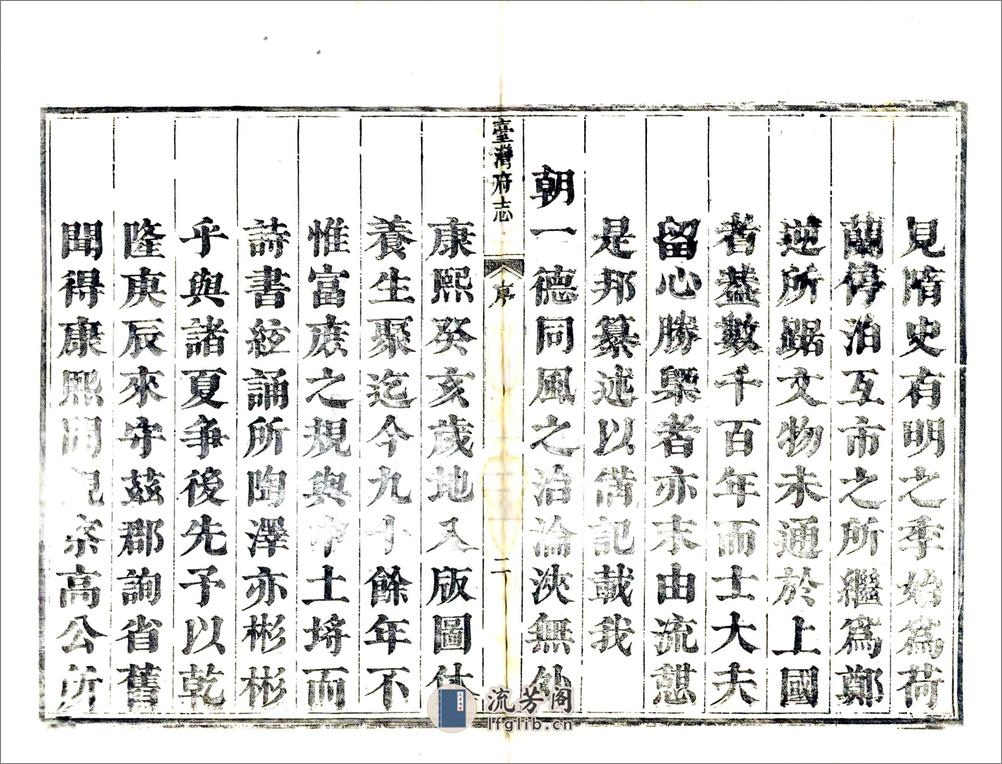 見隋史有明之季始爲荷
蘭停泊互市之所繼爲鄭
逆所踞文物未通於上國
者葢數千百年而士大夫
留心勝槩者亦末由流憇
是邦纂述以備記載我
朝一德同風之治淪浹無外
臺灣府志
序
二
康熙癸亥歲地入版圖休
養生聚迄今九十餘年不
惟富庶之規與中土埒而
詩書絃誦所陶澤亦彬彬
乎與諸夏爭後先予以乾
隆庚辰來守茲郡詢省舊
聞得康熙間觀察高公所
流芳阁
lfglib.cn